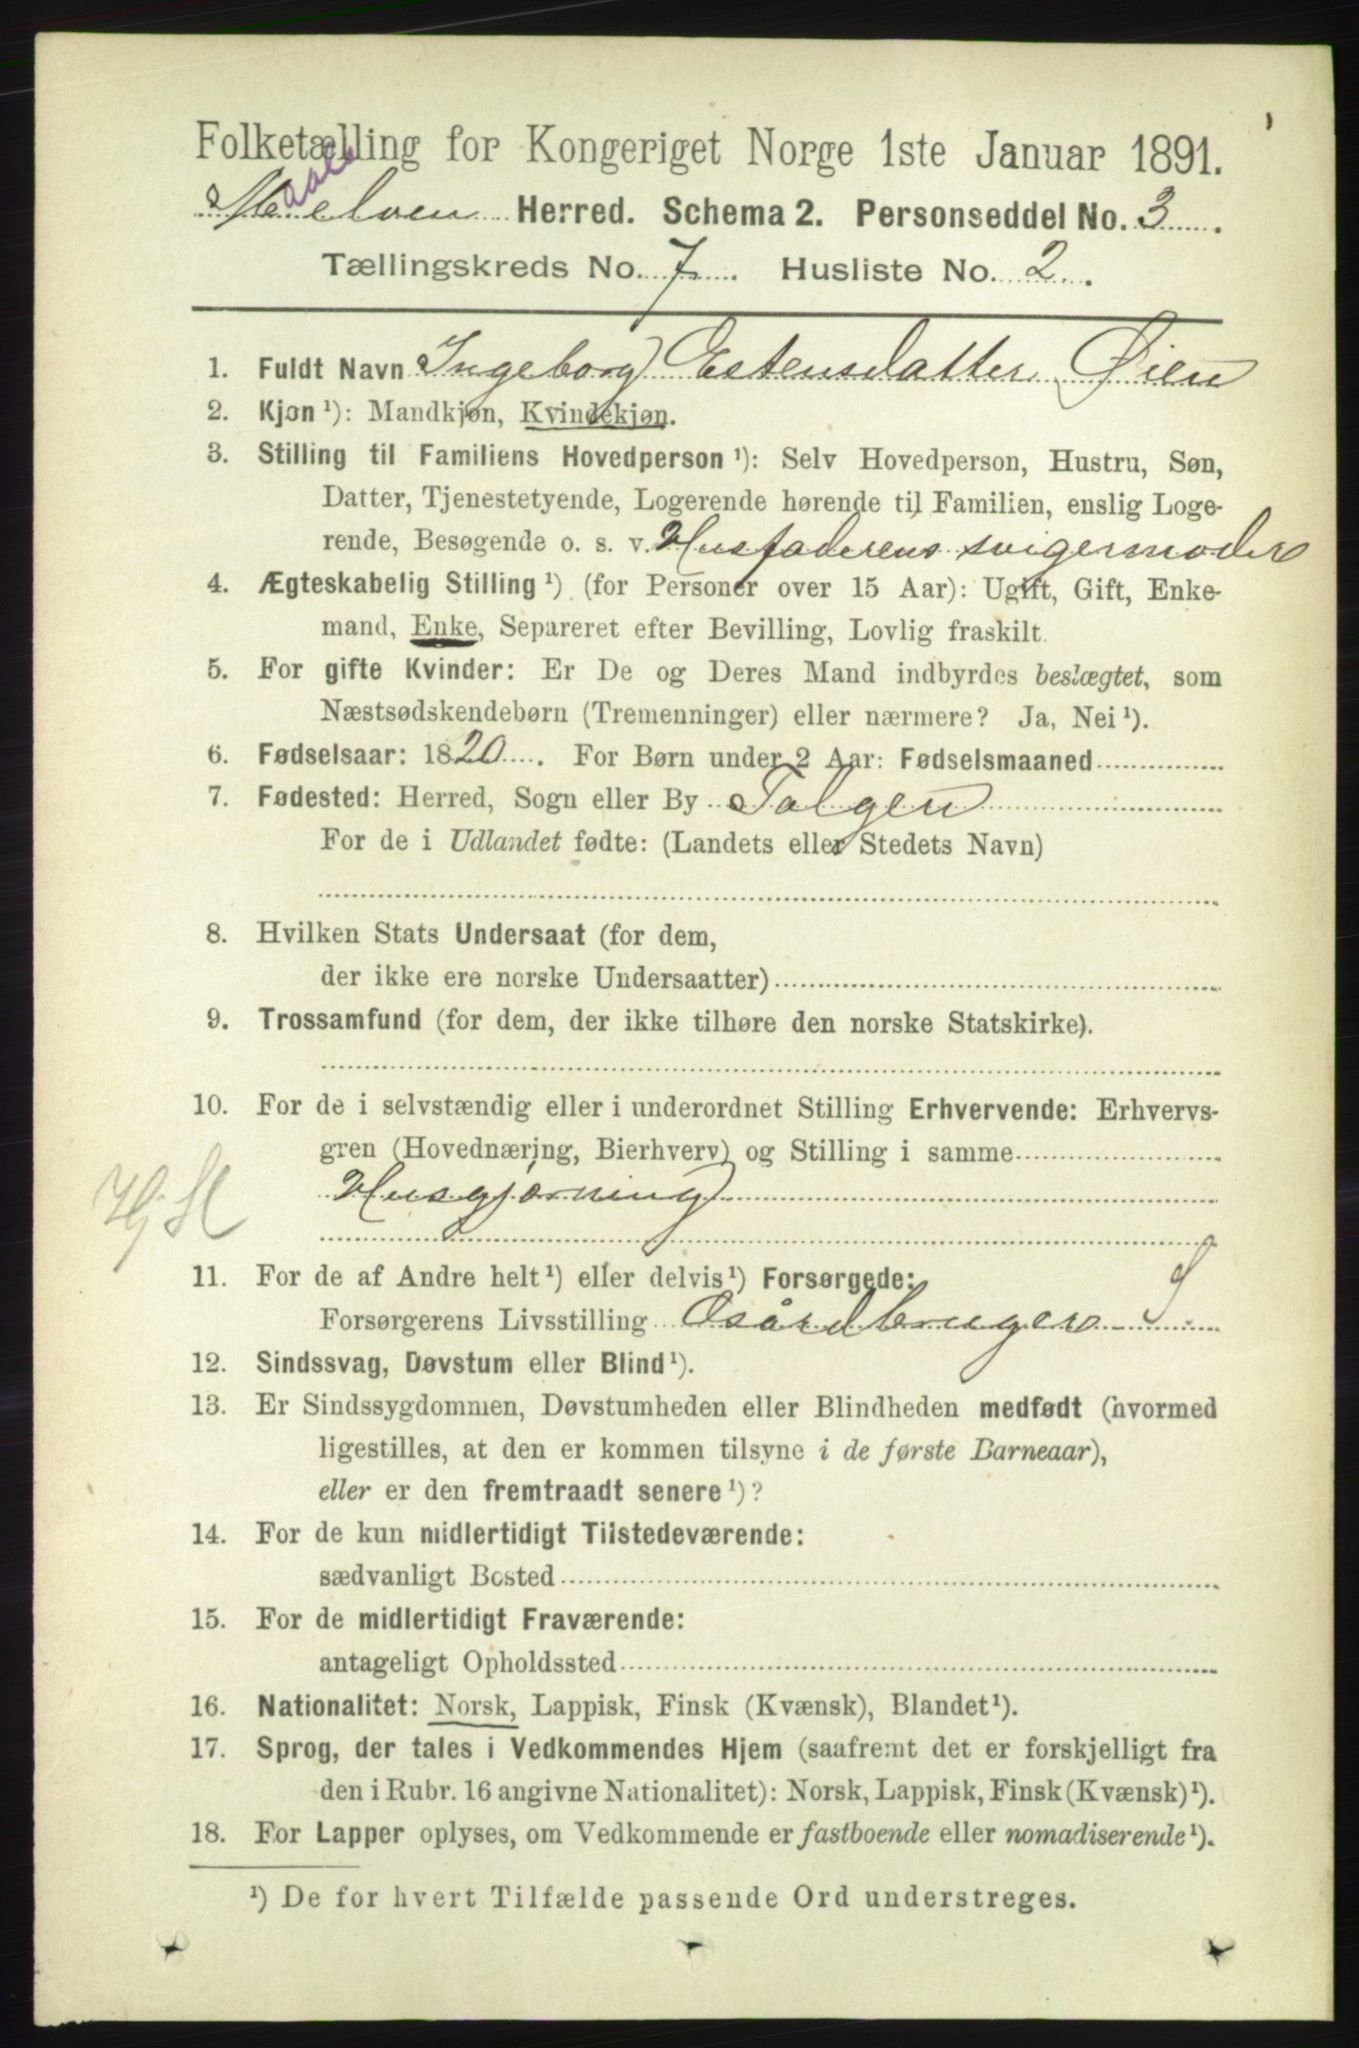 Folketælling for Kongeriget Norge 1ste Januar 1891.
Maalselven Herred. Schema 2. Personseddel No. 3.
Tællingskreds No. 7. Husliste No. 2.
1. Fuldt Navn Ingeborg Estensdatter Øien
2. Kjøn ¹): Mandkjøn, Kvindekjøn.
3. Stilling til Familiens Hovedperson ¹): Selv Hovedperson, Hustru, Søn,
Datter, Tjenestetyende, Logerende hørende til Familien, enslig Loge-
rende, Besøgende o. s. v. Husfaderens svigermoder
4. Ægteskabelig Stilling ¹) (for Personer over 15 Aar): Ugift, Gift, Enke-
mand, Enke, Separeret efter Bevilling, Lovlig fraskilt.
5. For gifte Kvinder: Er De og Deres Mand indbyrdes beslægtet, som
Næstsødskendebørn (Tremenninger) eller nærmere? Ja, Nei ¹).
6. Fødselsaar: 1820. For Børn under 2 Aar: Fødselsmaaned
7. Fødested: Herred, Sogn eller By Tolgen
For de i Udlandet fødte: (Landets eller Stedets Navn)
8. Hvilken Stats Undersaat (for dem,
der ikke ere norske Undersaatter)
9. Trossamfund (for dem, der ikke tilhøre den norske Statskirke).
10. For de i selvstændig eller i underordnet Stilling Erhvervende: Erhvervs-
gren (Hovednæring, Bierhverv) og Stilling i samme
Husgjørning
Hj. St
11. For de af Andre helt ¹) eller delvis ¹) Forsørgede:
Forsørgerens Livsstilling Gårdbruger S
12. Sindssvag, Døvstum eller Blind ¹).
13. Er Sindssygdommen, Døvstumheden eller Blindheden medfødt (hvormed
ligestilles, at den er kommen tilsyne i de første Barneaar),
eller er den fremtraadt senere ¹)?
14. For de kun midlertidigt Tilstedeværende:
sædvanligt Bosted
15. For de midlertidigt Fraværende:
antageligt Opholdssted
16. Nationalitet: Norsk, Lappisk, Finsk (Kvænsk), Blandet ¹).
17. Sprog, der tales i Vedkommendes Hjem (saafremt det er forskjelligt fra
den i Rubr. 16 angivne Nationalitet): Norsk, Lappisk, Finsk (Kvænsk) ¹).
18. For Lapper oplyses, om Vedkommende er fastboende eller nomadiserende ¹).
¹) De for hvert Tilfælde passende Ord understreges.